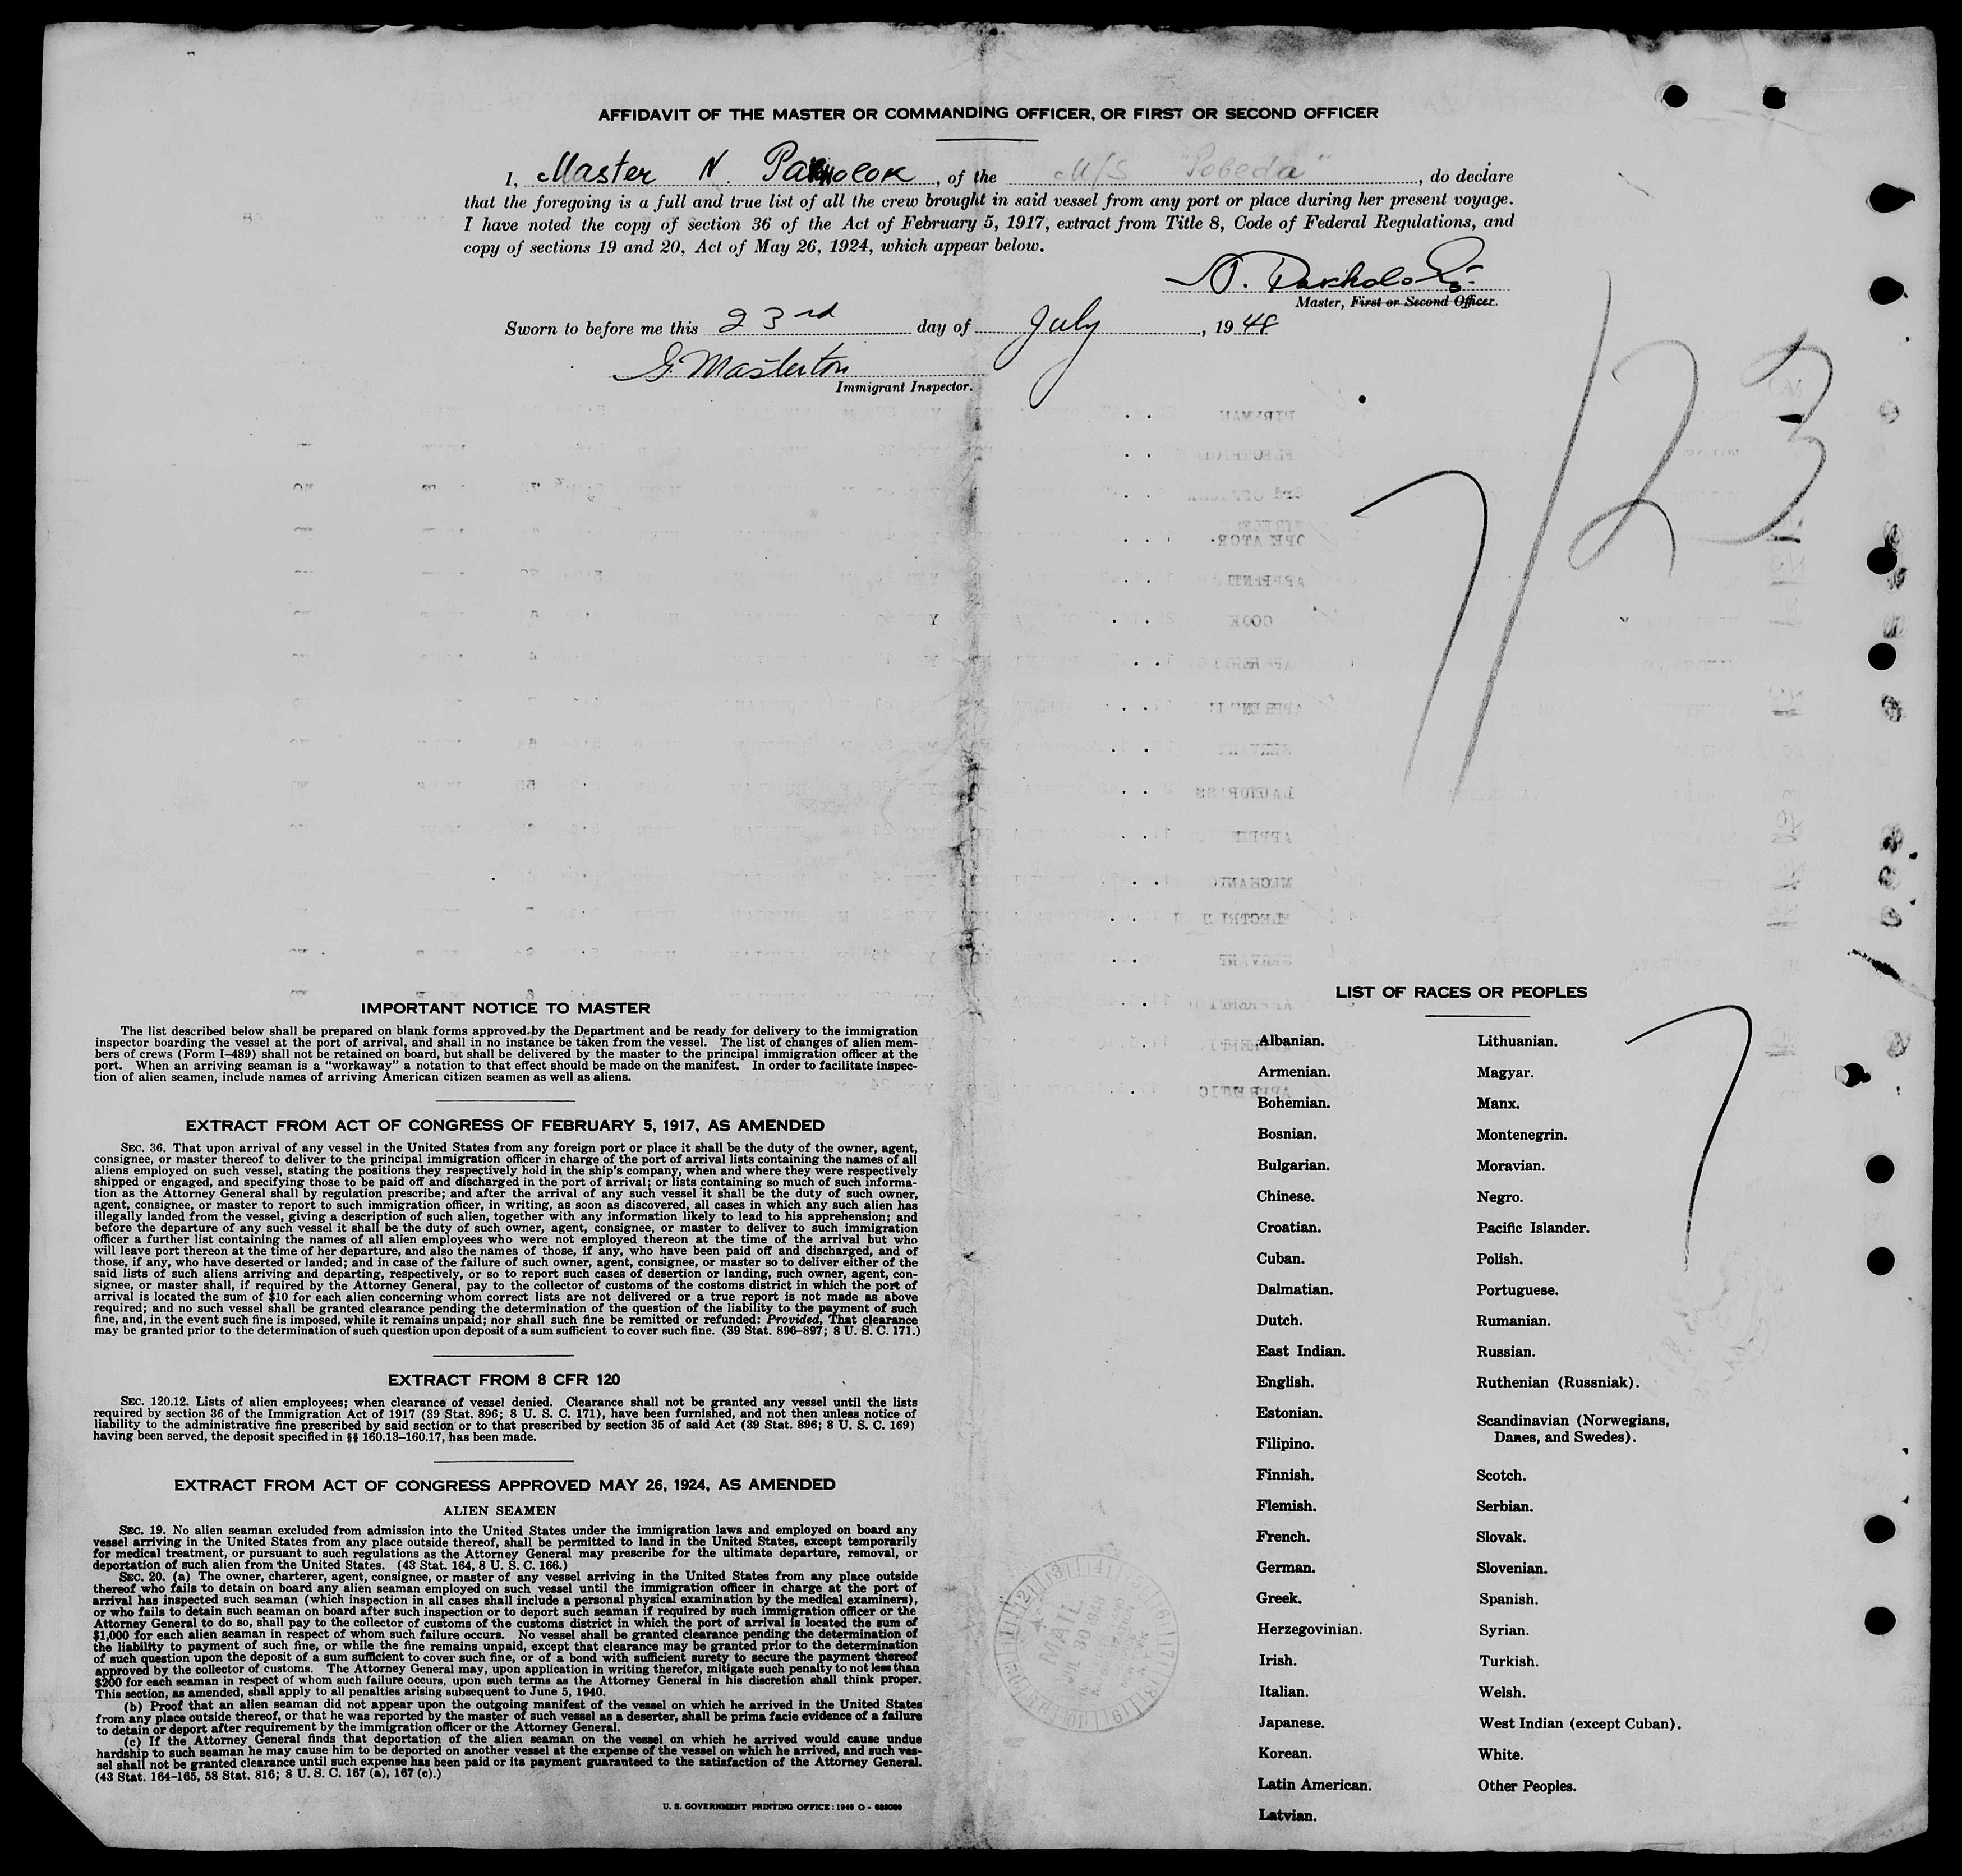 AFFIDAVIT OF THE MASTER OR COMMANDING OFFICER, OR FIRST OR SECOND OFFICER
I, Master N. Pakholok, of the M/S "Pobeda", do declare
that the foregoing is a full and true list of all the crew brought in said vessel from any port or place during her present voyage.
I have noted the copy of section 36 of the Act of February 5, 1917, extract from Title 8, Code of Federal Regulations, and
copy of sections 19 and 20, Act of May 26, 1924, which appear below.
N. Pakholok
Master, First or Second Officer.
Sworn to before me this 23rd day of July, 1948
G. Masterton
Immigrant Inspector.
7/23
IMPORTANT NOTICE TO MASTER
The list described below shall be prepared on blank forms approved by the Department and be ready for delivery to the immigration
inspector boarding the vessel at the port of arrival, and shall in no instance be taken from the vessel. The list of changes of alien mem-
bers of crews (Form I-489) shall not be retained on board, but shall be delivered by the master to the principal immigration officer at the
port. When an arriving seaman is a "workaway" a notation to that effect should be made on the manifest. In order to facilitate inspec-
tion of alien seamen, include names of arriving American citizen seamen as well as aliens.
EXTRACT FROM ACT OF CONGRESS OF FEBRUARY 5, 1917, AS AMENDED
SEC. 36. That upon arrival of any vessel in the United States from any foreign port or place it shall be the duty of the owner, agent,
consignee, or master thereof to deliver to the principal immigration officer in charge of the port of arrival lists containing the names of all
aliens employed on such vessel, stating the positions they respectively hold in the ship's company, when and where they were respectively
shipped or engaged, and specifying those to be paid off and discharged in the port of arrival; or lists containing so much of such informa-
tion as the Attorney General shall by regulation prescribe; and after the arrival of any such vessel it shall be the duty of such owner,
agent, consignee, or master to report to such immigration officer, in writing, as soon as discovered, all cases in which any such alien has
illegally landed from the vessel, giving a description of such alien, together with any information likely to lead to his apprehension; and
before the departure of any such vessel it shall be the duty of such owner, agent, consignee, or master to deliver to such immigration
officer a further list containing the names of all alien employees who were not employed thereon at the time of the arrival but who
will leave port thereon at the time of her departure, and also the names of those, if any, who have been paid off and discharged, and of
those, if any, who have deserted or landed; and in case of the failure of such owner, agent, consignee, or master so to deliver either of the
said lists of such aliens arriving and departing, respectively, or so to report such cases of desertion or landing, such owner, agent, con-
signee, or master shall, if required by the Attorney General, pay to the collector of customs of the costoms district in which the port of
arrival is located the sum of $10 for each alien concerning whom correct lists are not delivered or a true report is not made as above
required; and no such vessel shall be granted clearance pending the determination of the question of the liability to the payment of such
fine, and, in the event such fine is imposed, while it remains unpaid; nor shall such fine be remitted or refunded: Provided, That clearance
may be granted prior to the determination of such question upon deposit of a sum sufficient to cover such fine. (39 Stat. 896-897; 8 U. S. C. 171.)
EXTRACT FROM 8 CFR 120
SEC. 120.12. Lists of alien employees; when clearance of vessel denied. Clearance shall not be granted any vessel until the lists
required by section 36 of the Immigration Act of 1917 (39 Stat. 896; 8 U. S. C. 171), have been furnished, and not then unless notice of
liability to the administrative fine prescribed by said section or to that prescribed by section 35 of said Act (39 Stat. 896; 8 U. S. C. 169)
having been served, the deposit specified in §§ 160.13-160.17, has been made.
EXTRACT FROM ACT OF CONGRESS APPROVED MAY 26, 1924, AS AMENDED
ALIEN SEAMEN
SEC. 19. No alien seaman excluded from admission into the United States under the immigration laws and employed on board any
vessel arriving in the United States from any place outside thereof, shall be permitted to land in the United States, except temporarily
for medical treatment, or pursuant to such regulations as the Attorney General may prescribe for the ultimate departure, removal, or
deportation of such alien from the United States. (43 Stat. 164, 8 U. S. C. 166.)
SEC. 20. (a) The owner, charterer, agent, consignee, or master of any vessel arriving in the United States from any place outside
thereof who fails to detain on board any alien seaman employed on such vessel until the immigration officer in charge at the port of
arrival has inspected such seaman (which inspection in all cases shall include a personal physical examination by the medical examiners),
or who fails to detain such seaman on board after such inspection or to deport such seaman if required by such immigration officer or the
Attorney General to do so, shall pay to the collector of customs of the customs district in which the port of arrival is located the sum of
$1,000 for each alien seaman in respect of whom such failure occurs. No vessel shall be granted clearance pending the determination of
the liability to payment of such fine, or while the fine remains unpaid, except that clearance may be granted prior to the determination
of such question upon the deposit of a sum sufficient to cover such fine, or of a bond with sufficient surety to secure the payment thereof
approved by the collector of customs. The Attorney General may, upon application in writing therefor, mitigate such penalty to not less than
$200 for each seaman in respect of whom such failure occurs, upon such terms as the Attorney General in his discretion shall think proper.
This section, as amended, shall apply to all penalties arising subsequent to June 5, 1940.
(b) Proof that an alien seaman did not appear upon the outgoing manifest of the vessel on which he arrived in the United States
from any place outside thereof, or that he was reported by the master of such vessel as a deserter, shall be prima facie evidence of a failure
to detain or deport after requirement by the immigration officer or the Attorney General.
(c) If the Attorney General finds that deportation of the alien seaman on the vessel on which he arrived would cause undue
hardship to such seaman he may cause him to be deported on another vessel at the expense of the vessel on which he arrived, and such ves-
sel shall not be granted clearance until such expense has been paid or its payment guaranteed to the satisfaction of the Attorney General.
(43 Stat. 164-165, 58 Stat. 816; 8 U. S. C. 167 (a), 167 (c).)
U. S. GOVERNMENT PRINTING OFFICE: 1946 O -
LIST OF RACES OR PEOPLES
7
Albanian.
Armenian.
Bohemian.
Bosnian.
Bulgarian.
Chinese.
Croatian.
Cuban.
Dalmatian.
Dutch.
East Indian.
English.
Estonian.
Filipino.
Finnish.
Flemish.
French.
German.
Greek.
Herzegovinian.
Irish.
Italian.
Japanese.
Korean.
Latin American.
Latvian.
Lithuanian.
Magyar.
Manx.
Montenegrin.
Moravian.
Negro.
Pacific Islander.
Polish.
Portuguese.
Rumanian.
Russian.
Ruthenian (Russniak).
Scandinavian (Norwegians,
Danes, and Swedes).
Scotch.
Serbian.
Slovak.
Slovenian.
Spanish.
Syrian.
Turkish.
Welsh.
West Indian (except Cuban).
White.
Other Peoples.